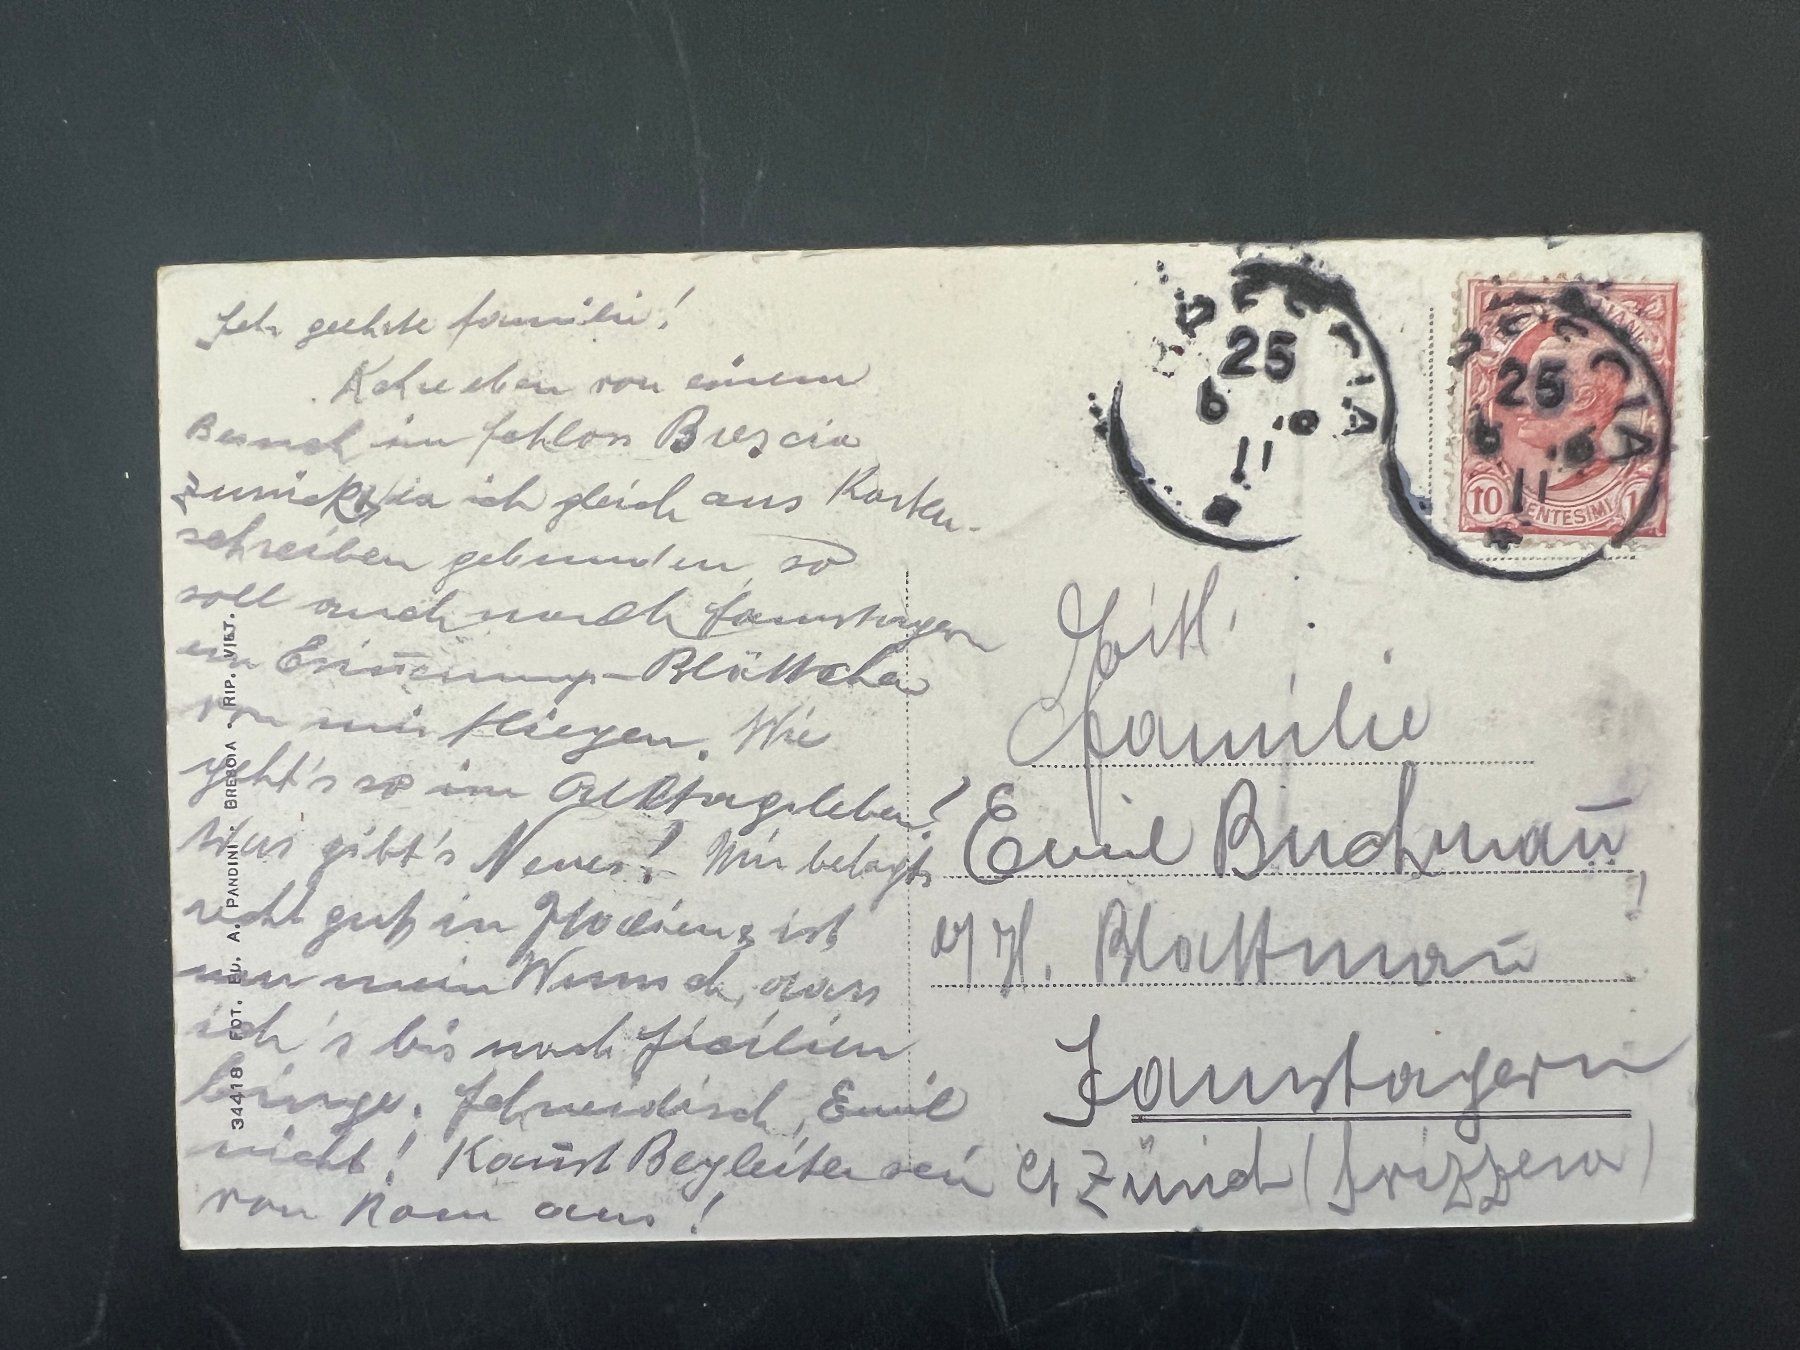 Sehr geehrte Familie!
Kehre eben von einem
Besuch im Schloss Brescia
zurück, da ich gleich ans Karten-
schreiben gebunden, so
soll auch nach Samstagern
ein Erinnerungs-Blättchen
von mir fliegen. Wie
geht's so im Alltagsleben?
Was gibt's Neues! Mir behagt's
recht gut in Italien, ist
nur mein Wunsch, dass
ich's bis nach Sizilien
bringe. Schneidisch, Emil
nicht! Kannst Begleiter sein
von Rom aus!
34418 FOT. ED. A. PANDINI. BRESCIA. RIP. VIET.
BRESCIA
25
6
11
BRESCIA
25
6
11
10 CENTESIMI
Familie
Emil Buchmañ
H. Blattmañ
Samstagern
Ct Zürich (Svizzera)